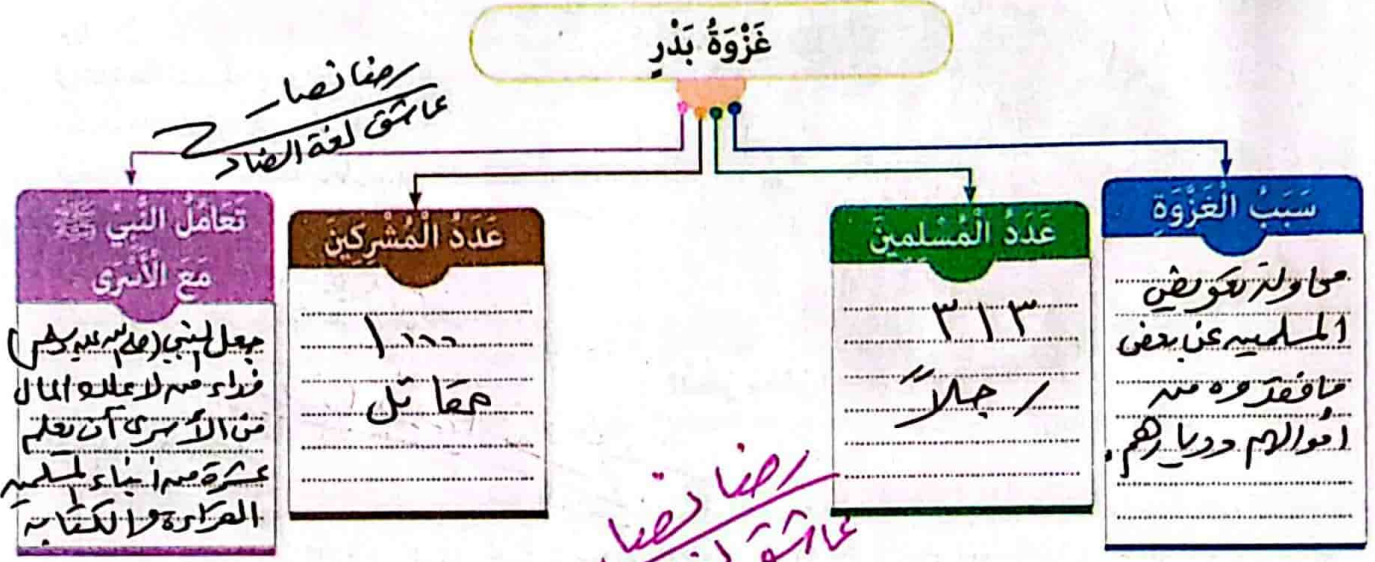 غَزْوَةُ بَدْرٍ
رضا نصار
عاشق لغة الضاد
سَبَبُ الْغَزْوَةِ
محاولة تعويض
المسلمين عن بعض
ما فقدوه من
أموالهم وديارهم.
عَدَدُ الْمُسْلِمِينَ
٣١٣
رجلاً
عَدَدُ الْمُشْرِكِينَ
١٠٠٠
مقاتل
تَعَامُلُ النَّبِيِّ ﷺ
مَعَ الْأَسْرَى
جعل النبي (صلى الله عليه وسلم)
فداء من لا يملك المال
من الأسرى أن يعلم
عشرة من أبناء المسلمين
القراءة والكتابة
رضا نصا
عاشق